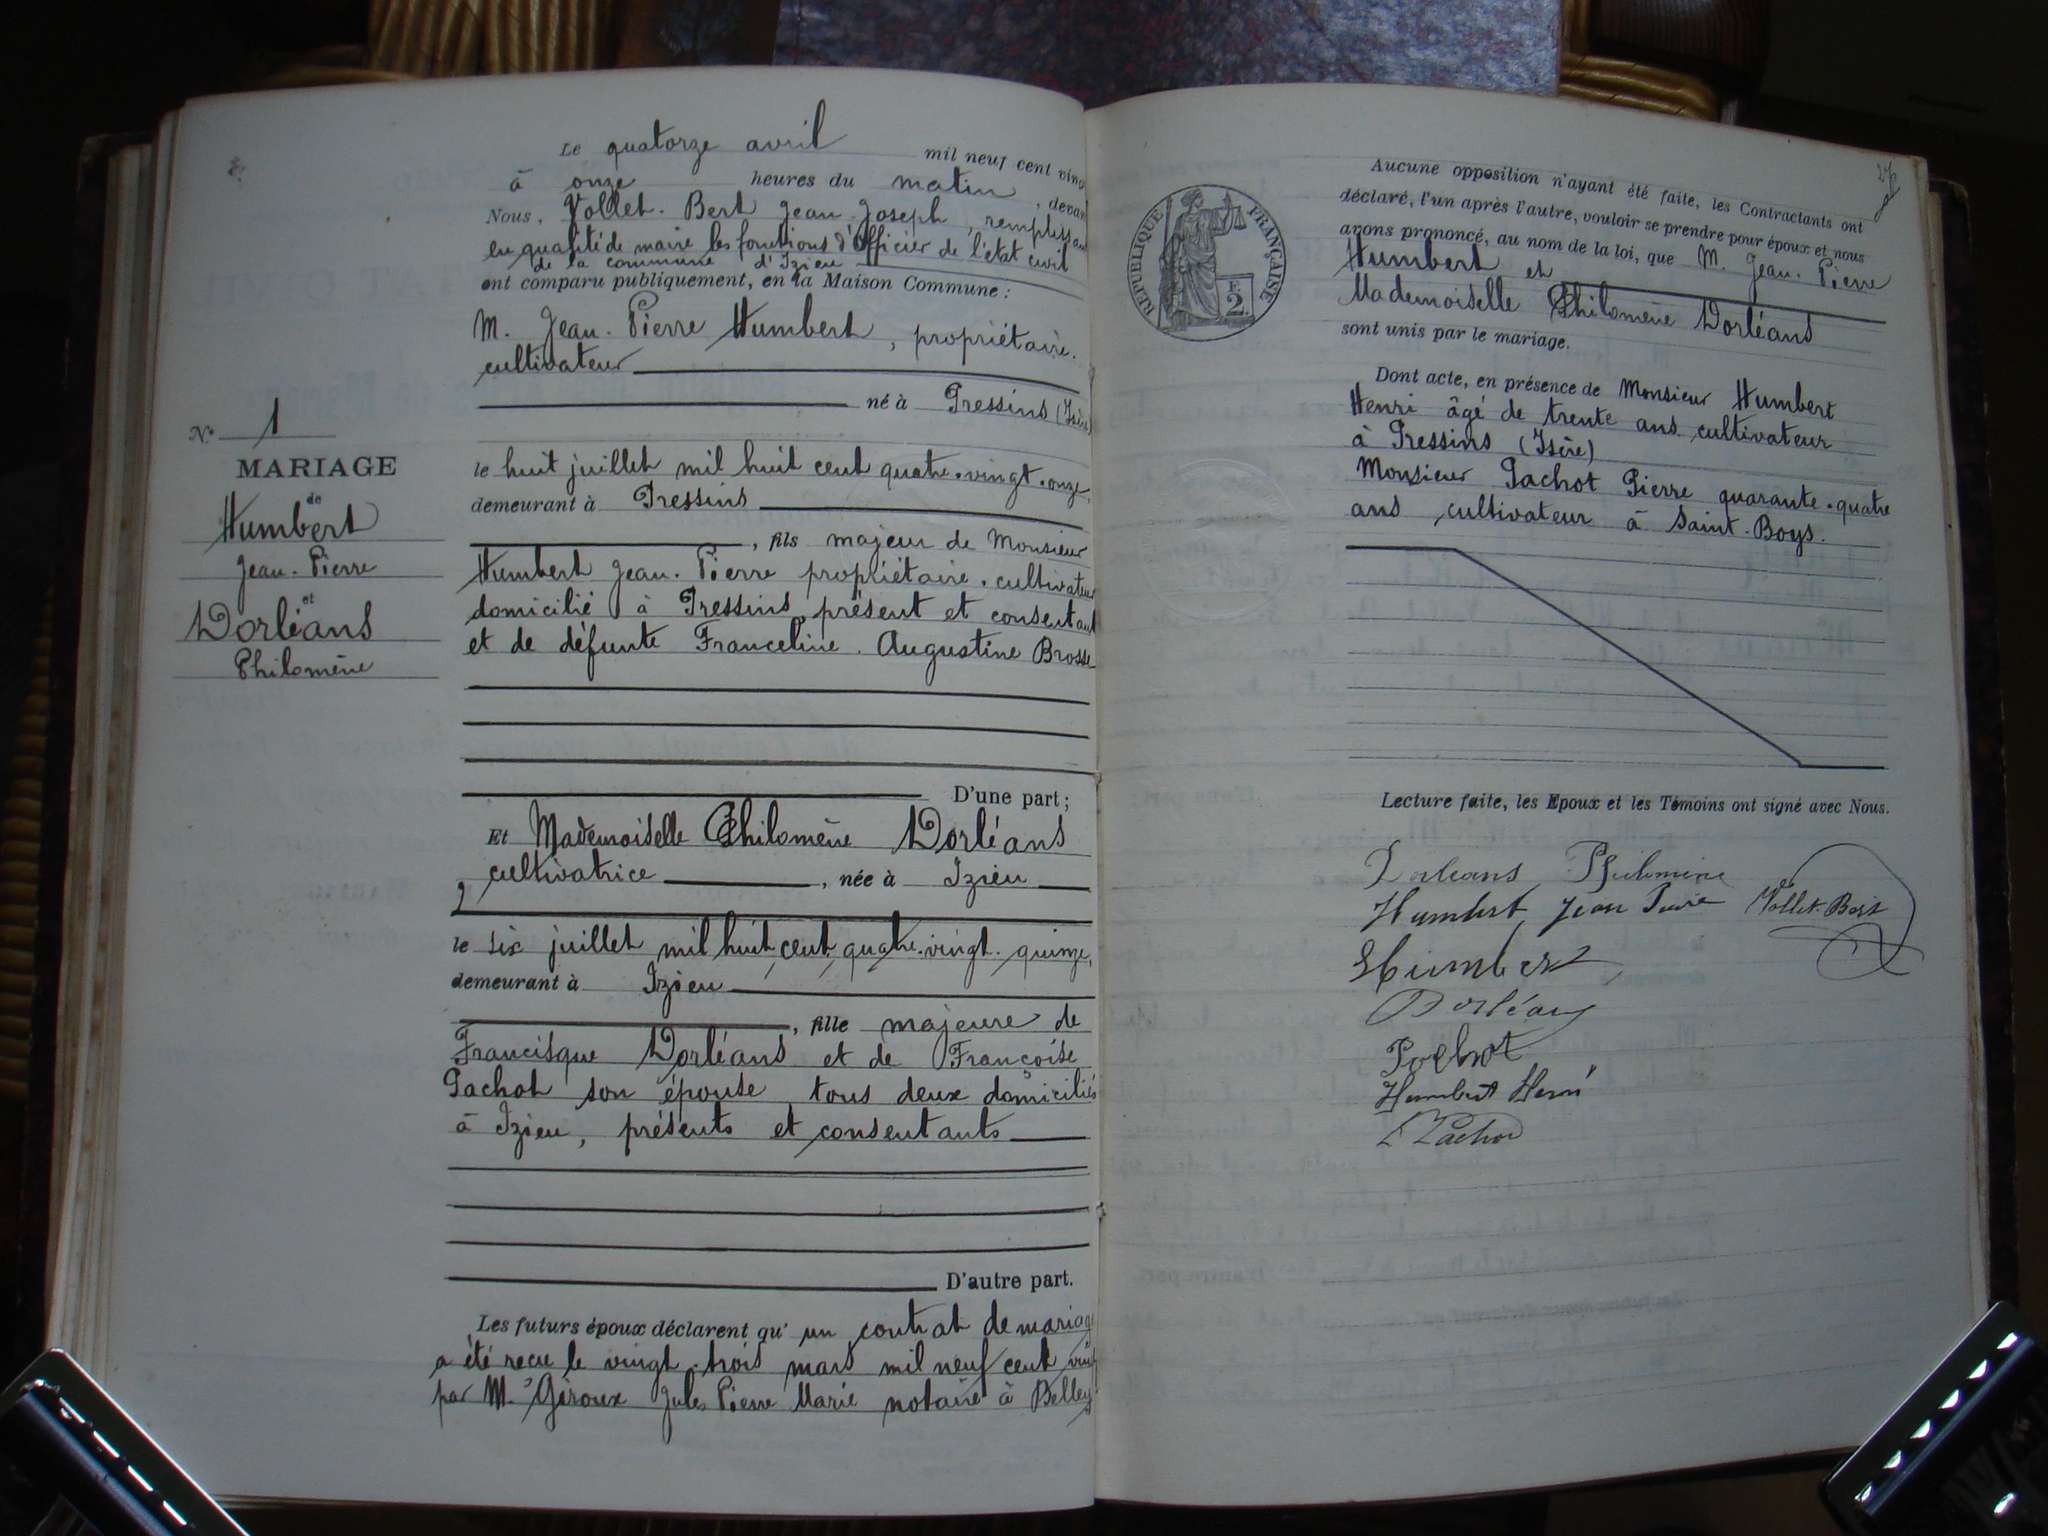 Le quatorze avril mil neuf cent vingt
à onze heures du matin, devant
Nous, Vollet-Bert Jean-Joseph, remplissant
en qualité de maire les fonctions d'Officier de l'état civil
de la commune d'Izieu
ont comparu publiquement, en la Maison Commune :
M. Jean-Pierre Humbert, propriétaire.
cultivateur
né à Pressins (Isère)
N° 1
MARIAGE
de
Humbert
Jean-Pierre
et
Dorléans
Philomène
le huit juillet mil huit cent quatre-vingt-onze,
demeurant à Pressins
, fils majeur de Monsieur
Humbert Jean-Pierre propriétaire-cultivateur
domicilié à Pressins, présent et consentant
et de défunte Franceline-Augustine Brosse
D'une part ;
Et Mademoiselle Philomène Dorléans
cultivatrice, née à Izieu
le six juillet mil huit cent quatre-vingt-quinze,
demeurant à Izieu
, fille majeure de
Francisque Dorléans et de Françoise
Pachot son épouse tous deux domiciliés
à Izieu, présents et consentants
D'autre part.
Les futurs époux déclarent qu'un contrat de mariage
a été reçu le vingt-trois mars mil neuf cent vingt
par Me Géroux Jules Pierre Marie notaire à Belley
RÉPUBLIQUE FRANÇAISE
2
Aucune opposition n'ayant été faite, les Contractants ont
déclaré, l'un après l'autre, vouloir se prendre pour époux et nous
avons prononcé, au nom de la loi, que M. Jean-Pierre
Humbert et
Mademoiselle Philomène Dorléans
sont unis par le mariage.
Dont acte, en présence de Monsieur Humbert
Henri âgé de trente ans cultivateur
à Pressins (Isère)
Monsieur Pachot Pierre quarante-quatre
ans, cultivateur à Saint-Boys.
Lecture faite, les Epoux et les Témoins ont signé avec Nous.
Dorléans Philomène
Humbert Jean Pierre Vollet-Bert
Humbert
Dorléans
Pachot
Humbert Henri
Pachot